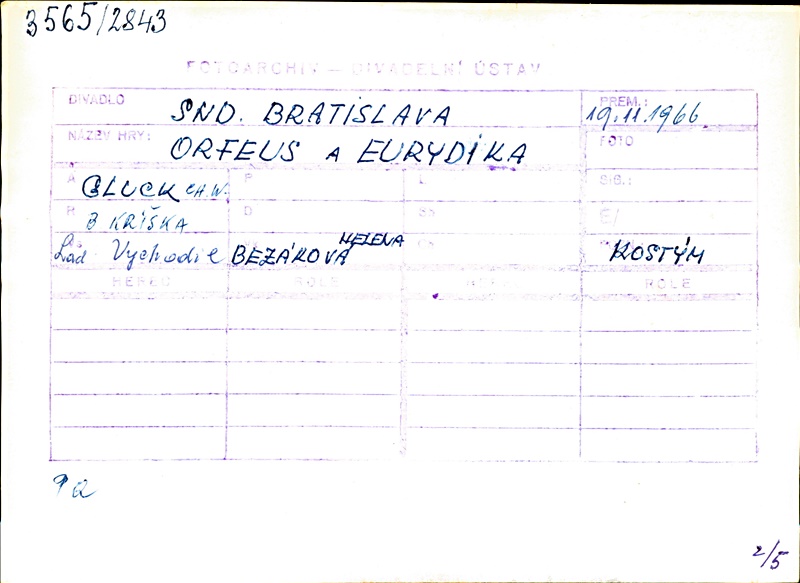 3565/2843
FOTOARCHIV – DIVADELNÍ ÚSTAV
DIVADLO SND. BRATISLAVA PREM.: 19.11.1966
NÁZEV HRY: ORFEUS A EURYDIKA FOTO
A GLUCK CH.W. P L SIG.:
R B KRIŠKA D E/
Lad Vychodil BEZÁKOVÁ HELENA KOSTÝM
HEREC ROLE HEREC ROLE
2/5